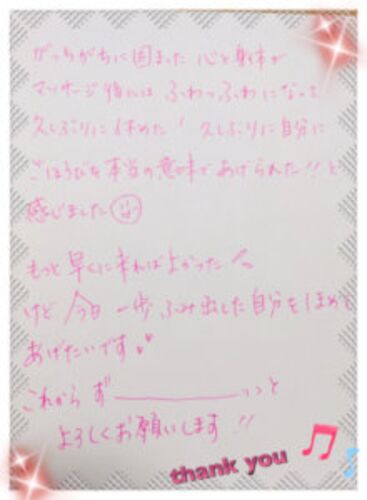 がっちがちに固まった心と身体が
マッサージ後にはふわっふわになって
久しぶりに休めた! 久しぶりに自分に
ごほうびを本当の意味であげられた!!と
感じました
もっと早くに来ればよかった
けど今日一歩ふみ出した自分をほめて
あげたいです♥
これからず―――――っと
よろしくお願いします!!
thank you